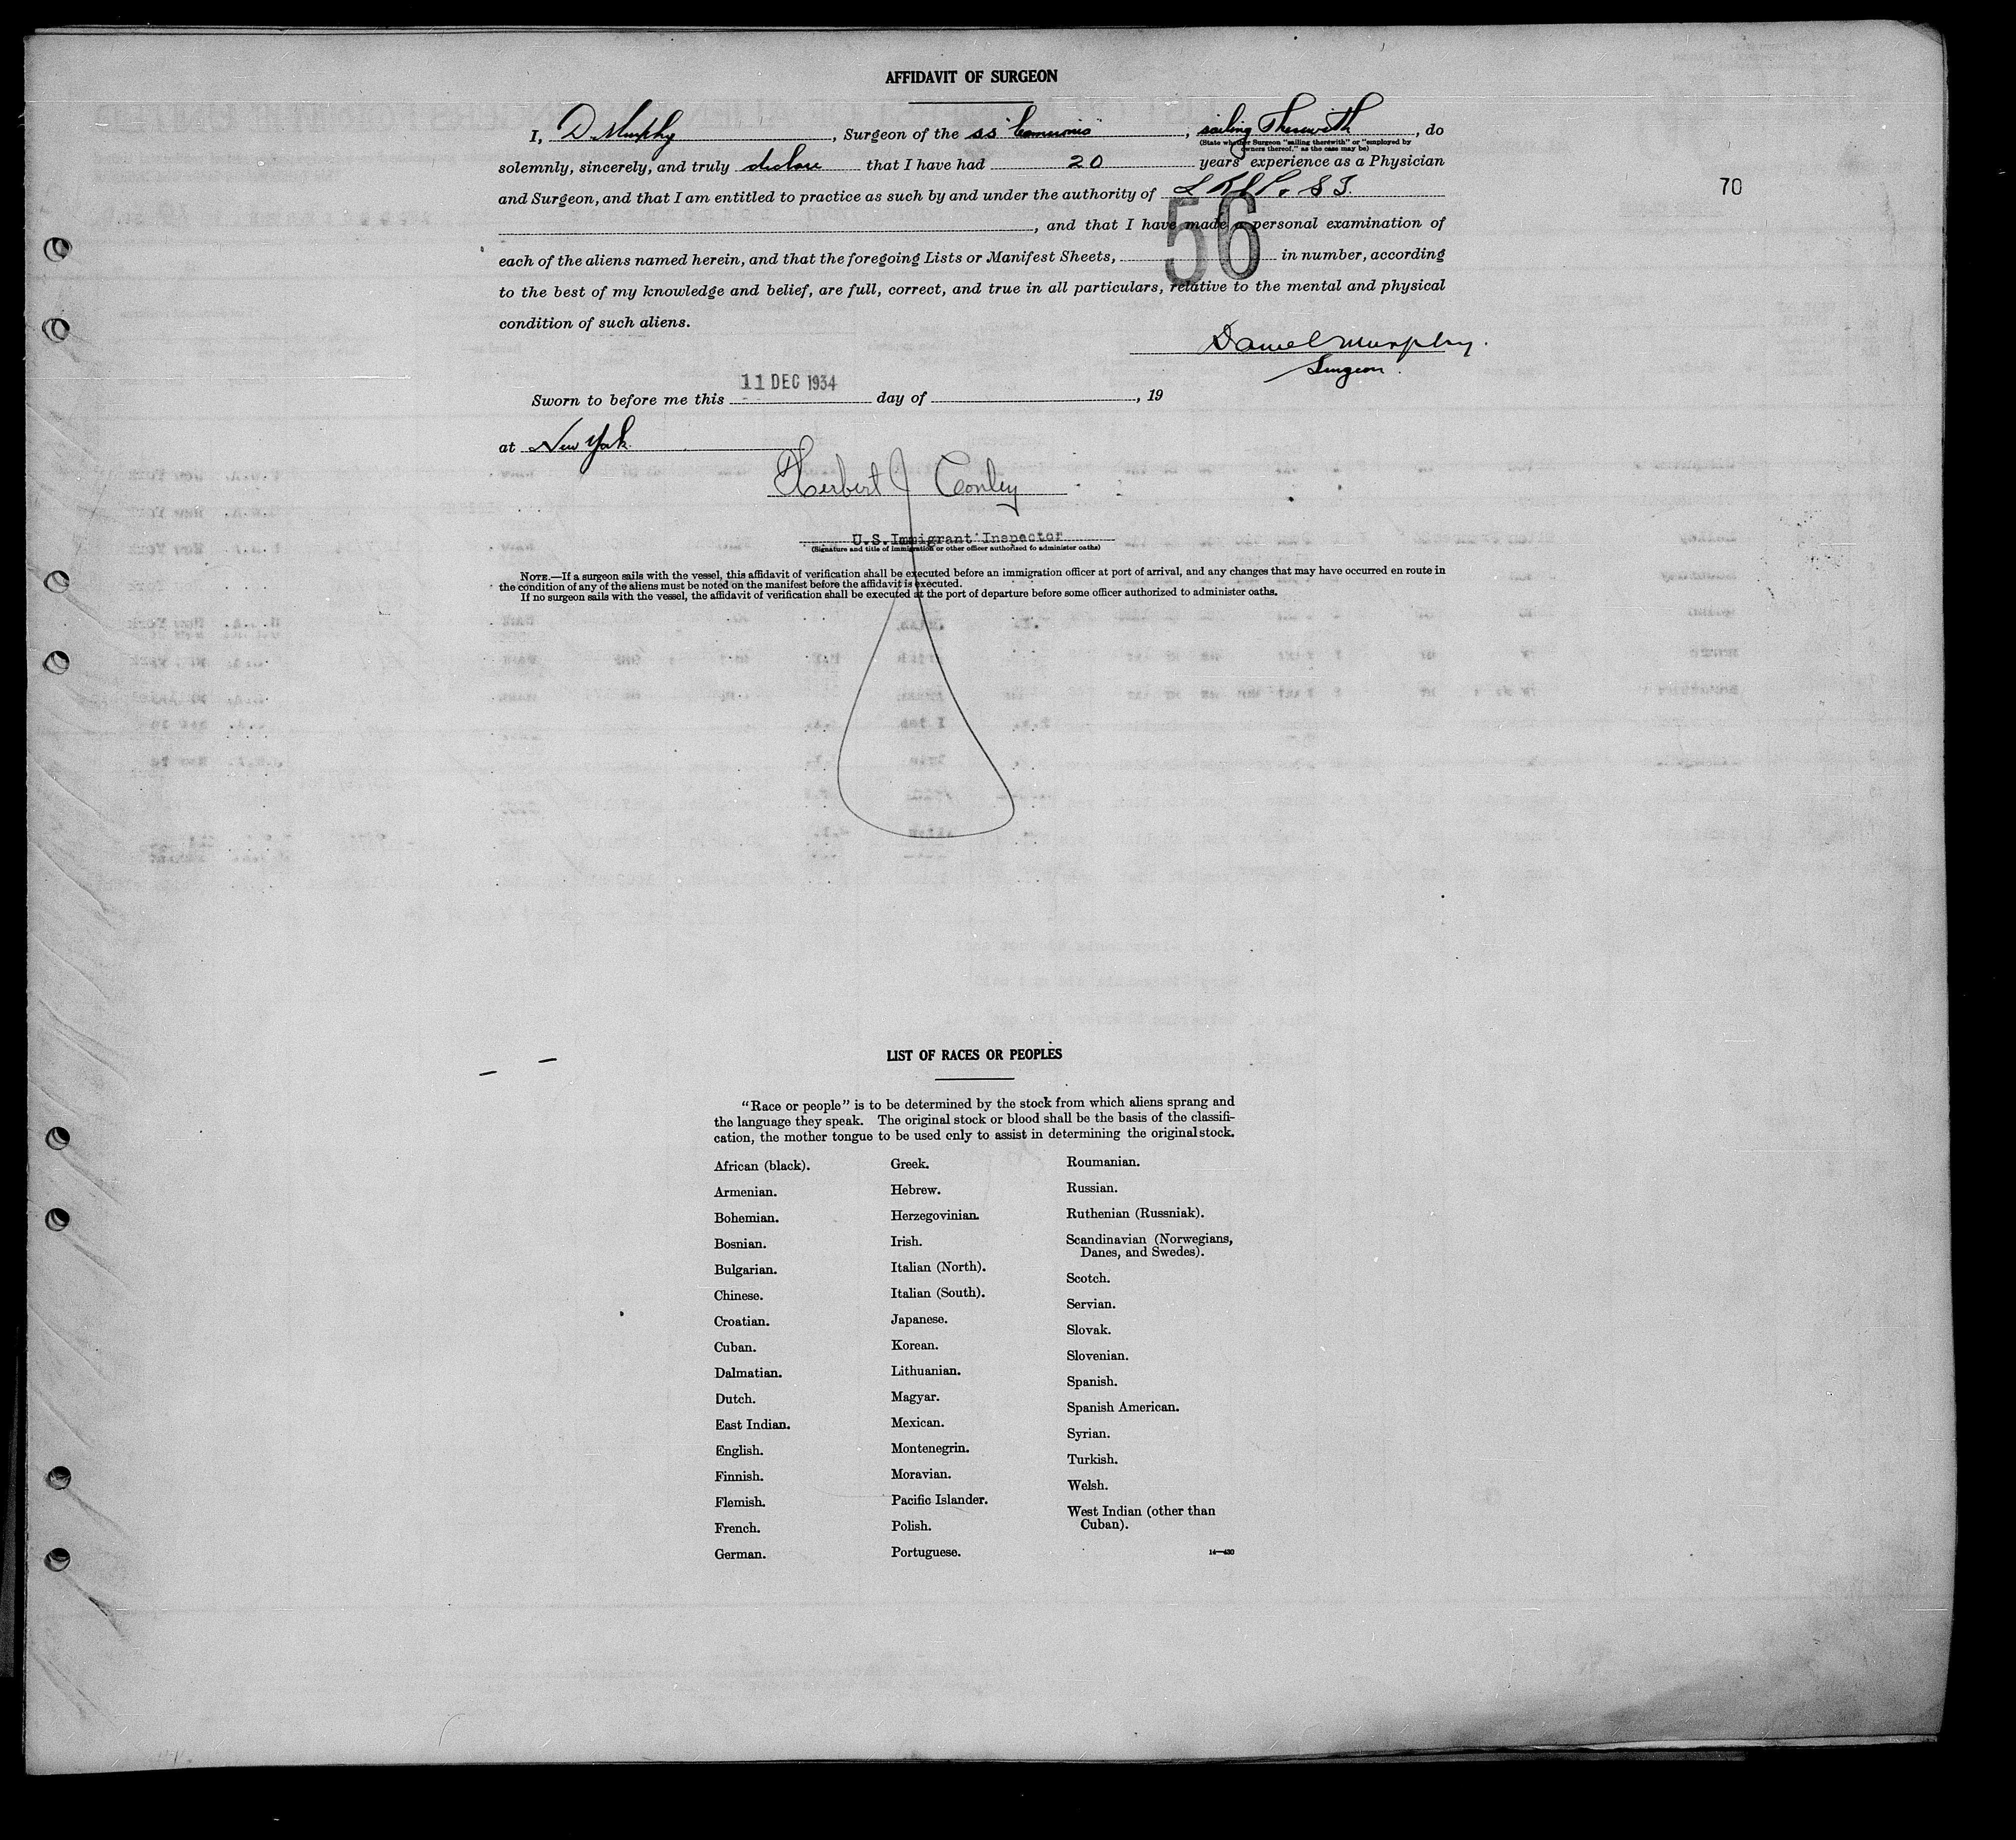 AFFIDAVIT OF SURGEON
I, D. Murphy, Surgeon of the SS "Cameronia", sailing Therewith, do
(State whether Surgeon "sailing therewith" or "employed by
owners thereof," as the case may be)
solemnly, sincerely, and truly declare that I have had 20 years' experience as a Physician
and Surgeon, and that I am entitled to practice as such by and under the authority of
70
, and that I have made a personal examination of
56
each of the aliens named herein, and that the foregoing Lists or Manifest Sheets, in number, according
to the best of my knowledge and belief, are full, correct, and true in all particulars, relative to the mental and physical
condition of such aliens.
Daniel Murphy.
Surgeon.
11 DEC 1934
Sworn to before me this day of , 19
at New York
Herbert J Conley
U.S. Immigrant Inspector
(Signature and title of immigration or other officer authorized to administer oaths)
NOTE.—If a surgeon sails with the vessel, this affidavit of verification shall be executed before an immigration officer at port of arrival, and any changes that may have occurred en route in
the condition of any of the aliens must be noted on the manifest before the affidavit is executed.
If no surgeon sails with the vessel, the affidavit of verification shall be executed at the port of departure before some officer authorized to administer oaths.
LIST OF RACES OR PEOPLES
"Race or people" is to be determined by the stock from which aliens sprang and
the language they speak. The original stock or blood shall be the basis of the classifi-
cation, the mother tongue to be used only to assist in determining the original stock.
African (black).
Armenian.
Bohemian.
Bosnian.
Bulgarian.
Chinese.
Croatian.
Cuban.
Dalmatian.
Dutch.
East Indian.
English.
Finnish.
Flemish.
French.
German.
Greek.
Hebrew.
Herzegovinian.
Irish.
Italian (North).
Italian (South).
Japanese.
Korean.
Lithuanian.
Magyar.
Mexican.
Montenegrin.
Moravian.
Pacific Islander.
Polish.
Portuguese.
Roumanian.
Russian.
Ruthenian (Russniak).
Scandinavian (Norwegians,
Danes, and Swedes).
Scotch.
Servian.
Slovak.
Slovenian.
Spanish.
Spanish American.
Syrian.
Turkish.
Welsh.
West Indian (other than
Cuban).
14—430